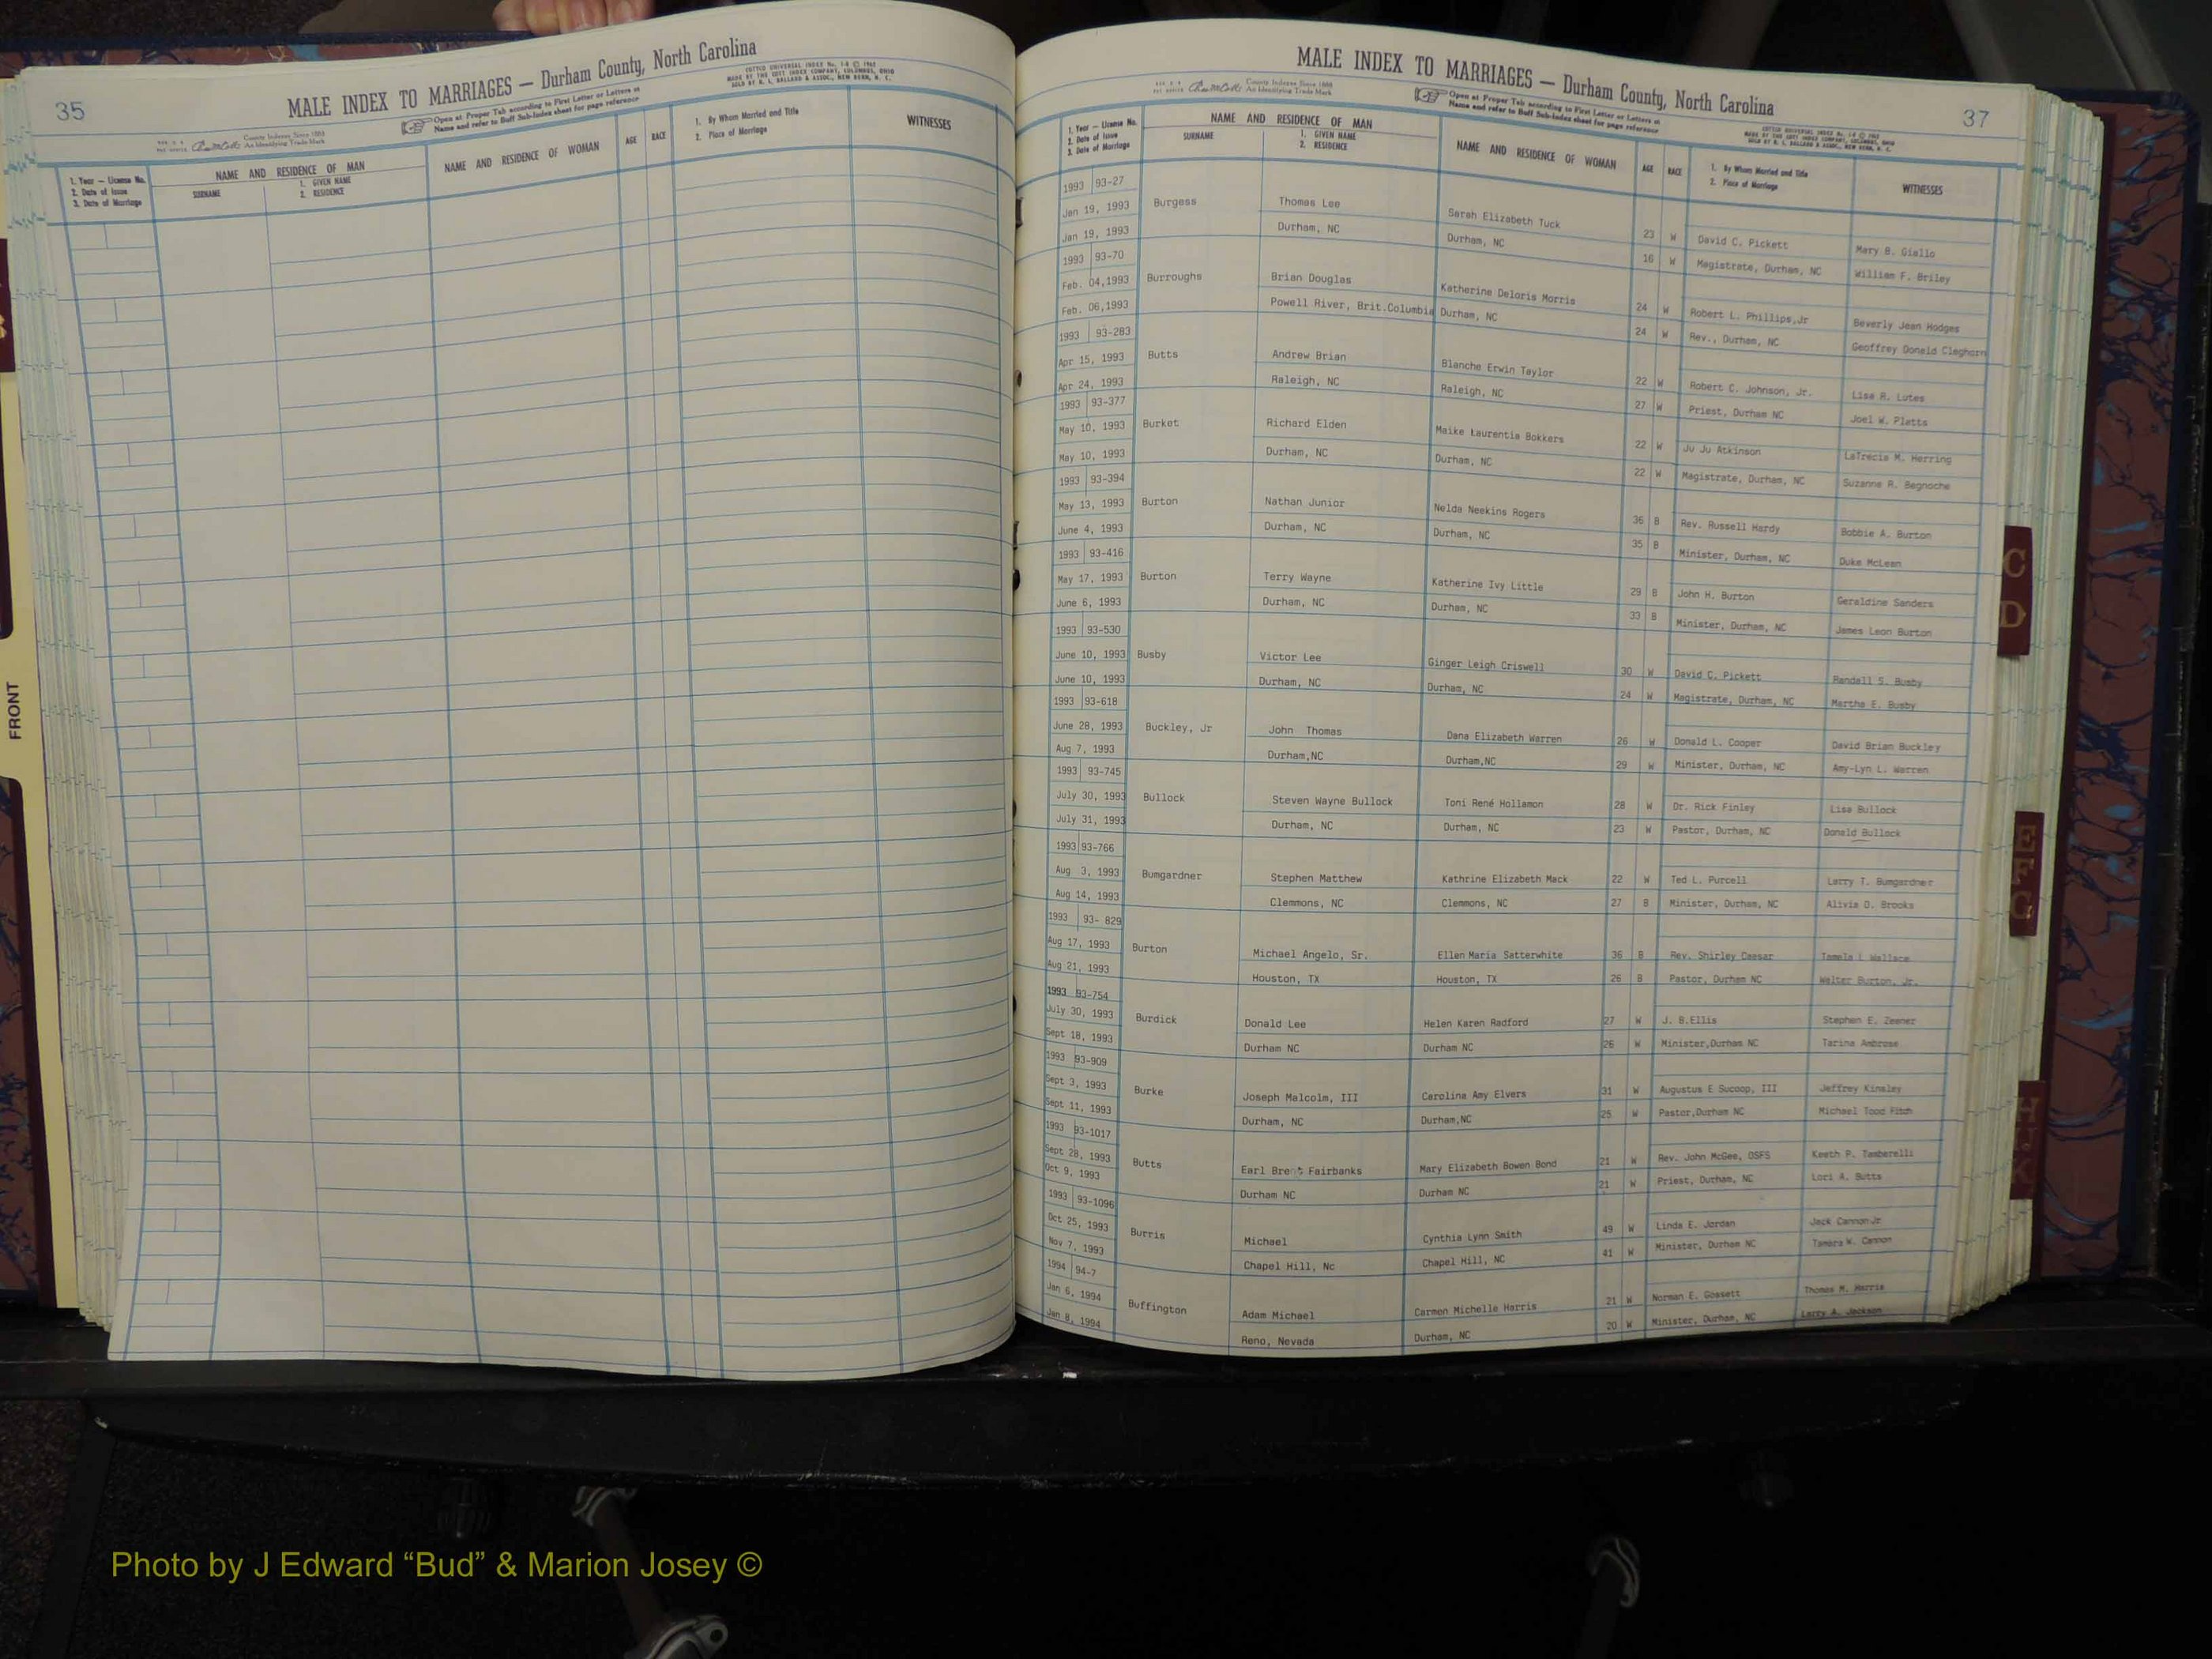 35
MALE INDEX TO MARRIAGES — Durham County, North Carolina
COTTCO UNIVERSAL INDEX No. 1-8 © 1965
MADE BY THE COTT INDEX COMPANY, COLUMBUS, OHIO
SOLD BY R. L. BALLARD & ASSOC., NEW BERN, N. C.
County Indexes Since 1888
An Identifying Trade Mark
Open at Proper Tab according to First Letter or Letters of
Name and refer to Buff Sub-Index sheet for page reference
1. Year — License No.
2. Date of Issue
3. Date of Marriage
NAME AND RESIDENCE OF MAN
SURNAME
1. GIVEN NAME
2. RESIDENCE
NAME AND RESIDENCE OF WOMAN
AGE
RACE
1. By Whom Married and Title
2. Place of Marriage
WITNESSES
FRONT
MALE INDEX TO MARRIAGES — Durham County, North Carolina
37
County Indexes Since 1888
An Identifying Trade Mark
Open at Proper Tab according to First Letter or Letters of
Name and refer to Buff Sub-Index sheet for page reference
COTTCO UNIVERSAL INDEX No. 1-8 © 1965
MADE BY THE COTT INDEX COMPANY, COLUMBUS, OHIO
SOLD BY R. L. BALLARD & ASSOC., NEW BERN, N. C.
1. Year — License No.
2. Date of Issue
3. Date of Marriage
NAME AND RESIDENCE OF MAN
SURNAME
1. GIVEN NAME
2. RESIDENCE
NAME AND RESIDENCE OF WOMAN
AGE
RACE
1. By Whom Married and Title
2. Place of Marriage
WITNESSES
1993 93-27
Jan 19, 1993 Burgess Thomas Lee Sarah Elizabeth Tuck 23 W David C. Pickett Mary B. Giallo
Jan 19, 1993 Durham, NC Durham, NC 16 W Magistrate, Durham, NC William F. Briley
1993 93-70
Feb. 04,1993 Burroughs Brian Douglas Katherine Deloris Morris 24 W Robert L. Phillips,Jr Beverly Jean Hodges
Feb. 06,1993 Powell River, Brit.Columbia Durham, NC 24 W Rev., Durham, NC Geoffrey Donald Cleghorn
1993 93-283
Apr 15, 1993 Butts Andrew Brian Blanche Erwin Taylor 22 W Robert C. Johnson, Jr. Lisa R. Lutes
Apr 24, 1993 Raleigh, NC Raleigh, NC 27 W Priest, Durham NC Joel W. Platts
1993 93-377
May 10, 1993 Burket Richard Elden Maike Laurentia Bokkers 22 W Ju Ju Atkinson LaTrecia M. Herring
May 10, 1993 Durham, NC Durham, NC 22 W Magistrate, Durham, NC Suzanne R. Begnoche
1993 93-394
May 13, 1993 Burton Nathan Junior Nelda Neekins Rogers 36 B Rev. Russell Hardy Bobbie A. Burton
June 4, 1993 Durham, NC Durham, NC 35 B Minister, Durham, NC Duke McLean
1993 93-416
May 17, 1993 Burton Terry Wayne Katherine Ivy Little 29 B John H. Burton Geraldine Sanders
June 6, 1993 Durham, NC Durham, NC 33 B Minister, Durham, NC James Leon Burton
1993 93-530
June 10, 1993 Busby Victor Lee Ginger Leigh Criswell 30 W David C. Pickett Randall S. Busby
June 10, 1993 Durham, NC Durham, NC 24 W Magistrate, Durham, NC Martha E. Busby
1993 93-618
June 28, 1993 Buckley, Jr John Thomas Dana Elizabeth Warren 26 W Donald L. Cooper David Brian Buckley
Aug 7, 1993 Durham,NC Durham,NC 29 W Minister, Durham, NC Amy-Lyn L. Warren
1993 93-745
July 30, 1993 Bullock Steven Wayne Bullock Toni René Hollamon 28 W Dr. Rick Finley Lisa Bullock
July 31, 1993 Durham, NC Durham, NC 23 W Pastor, Durham, NC Donald Bullock
1993 93-766
Aug 3, 1993 Bumgardner Stephen Matthew Kathrine Elizabeth Mack 22 W Ted L. Purcell Larry T. Bumgardner
Aug 14, 1993 Clemmons, NC Clemmons, NC 27 B Minister, Durham, NC Alivia D. Brooks
1993 93- 829
Aug 17, 1993 Burton Michael Angelo, Sr. Ellen Maria Satterwhite 36 B Rev. Shirley Caesar Tamela L Wallace
Aug 21, 1993 Houston, TX Houston, TX 26 B Pastor, Durham NC Walter Burton, Jr.
1993 93-754
July 30, 1993 Burdick Donald Lee Helen Karen Radford 27 W J. B.Ellis Stephen E. Zeener
Sept 18, 1993 Durham NC Durham NC 26 W Minister,Durham NC Tarina Ambrose
1993 93-909
Sept 3, 1993 Burke Joseph Malcolm, III Carolina Amy Elvers 31 W Augustus E Sucoop, III Jeffrey Kinsley
Sept 11, 1993 Durham, NC Durham,NC 25 W Pastor,Durham NC Michael Tood Fitch
1993 93-1017
Sept 28, 1993 Butts Earl Brent Fairbanks Mary Elizabeth Bowen Bond 21 W Rev. John McGee, OSFS Keeth P. Tamberelli
Oct 9, 1993 Durham NC Durham NC 21 W Priest, Durham, NC Lori A. Butts
1993 93-1096
Oct 25, 1993 Burris Michael Cynthia Lynn Smith 49 W Linda E. Jordan Jack Cannon Jr
Nov 7, 1993 Chapel Hill, Nc Chapel Hill, NC 41 W Minister, Durham NC Tamara W. Cannon
1994 94-7
Jan 6, 1994 Buffington Adam Michael Carmen Michelle Harris 21 W Norman E. Gossett Thomas M. Harris
Jan 8, 1994 Reno, Nevada Durham, NC 20 W Minister, Durham, NC Larry A. Jackson
C
D
E
F
G
H
Photo by J Edward “Bud” & Marion Josey ©